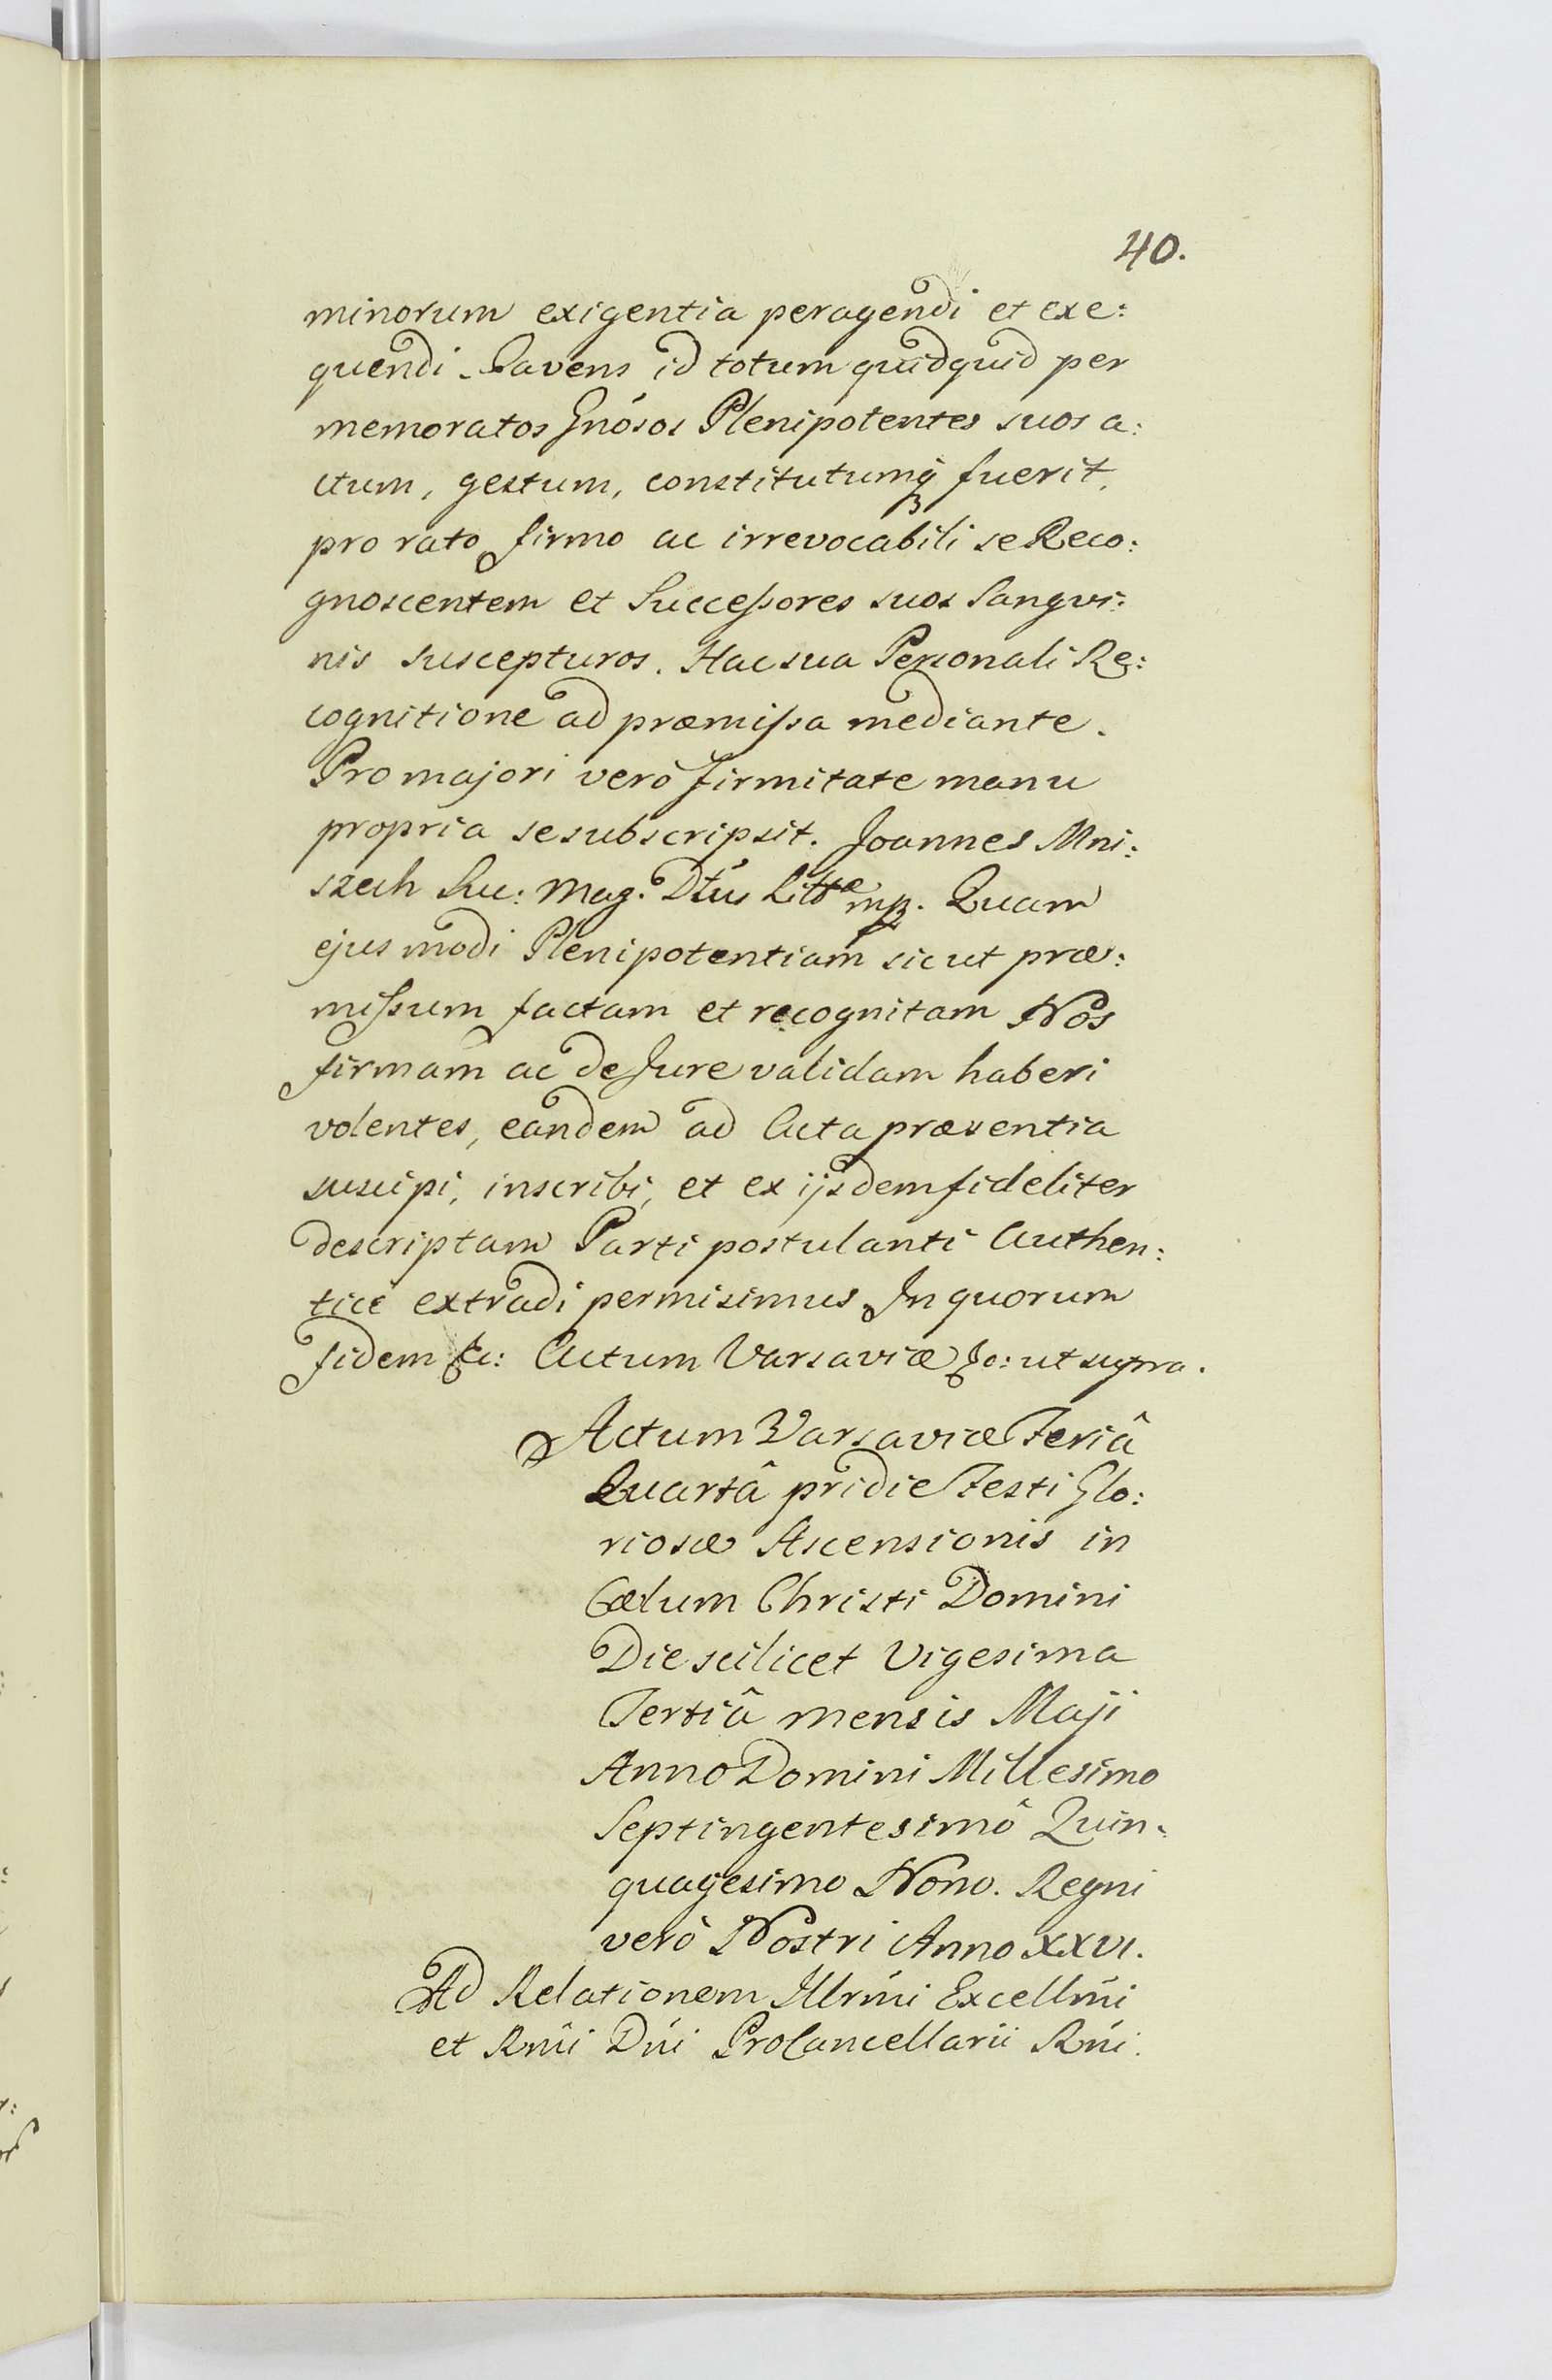 40.
minorum exigentia peragendi et exe:
quendi. Cavens id totum quidquid per
memoratos Gnósos Plenipotentes suos a:
ctum, gestum, constitutumq fuerit,
pro rato firmo ac irrevocabili se Reco:
gnoscentem et Successores suos Sangvi:
nis suscepturos. Hac sua Personali Re:
cognitione ad præmissa mediante.
Pro majori verò firmitate manu
propria se subscripsit. Joannes Mni:
szech Suc: Mag. Dtús Littæ mp. Quam
ejus modi Plenipotentiam sicut præ:
missum factam et recognitam Nos
firmam ac de Jure validam haberi
volentes, eandem ad Acta præsentia
suscipi, inscribi, et ex ijsdem fideliter
descriptam Parti postulanti Authen:
tice extradi permisimus In quorum
fidem &c: Actum Varsaviæ &c: ut supra.
Actum Varsaviæ Feriâ
Quartâ pridie Festi Glo:
riosæ Ascensionis in
Cælum Christi Domini
Die scilicet Vigesima
Tertiâ mensis Maji
Anno Domini Millesimo
Septingentesimô Quin:
quagesimo Nono. Regni
verò Nostri Anno XXVI.
Ad Relationem Illrmi Excellmi
et Rmi Dni ProCancellarii Rni.